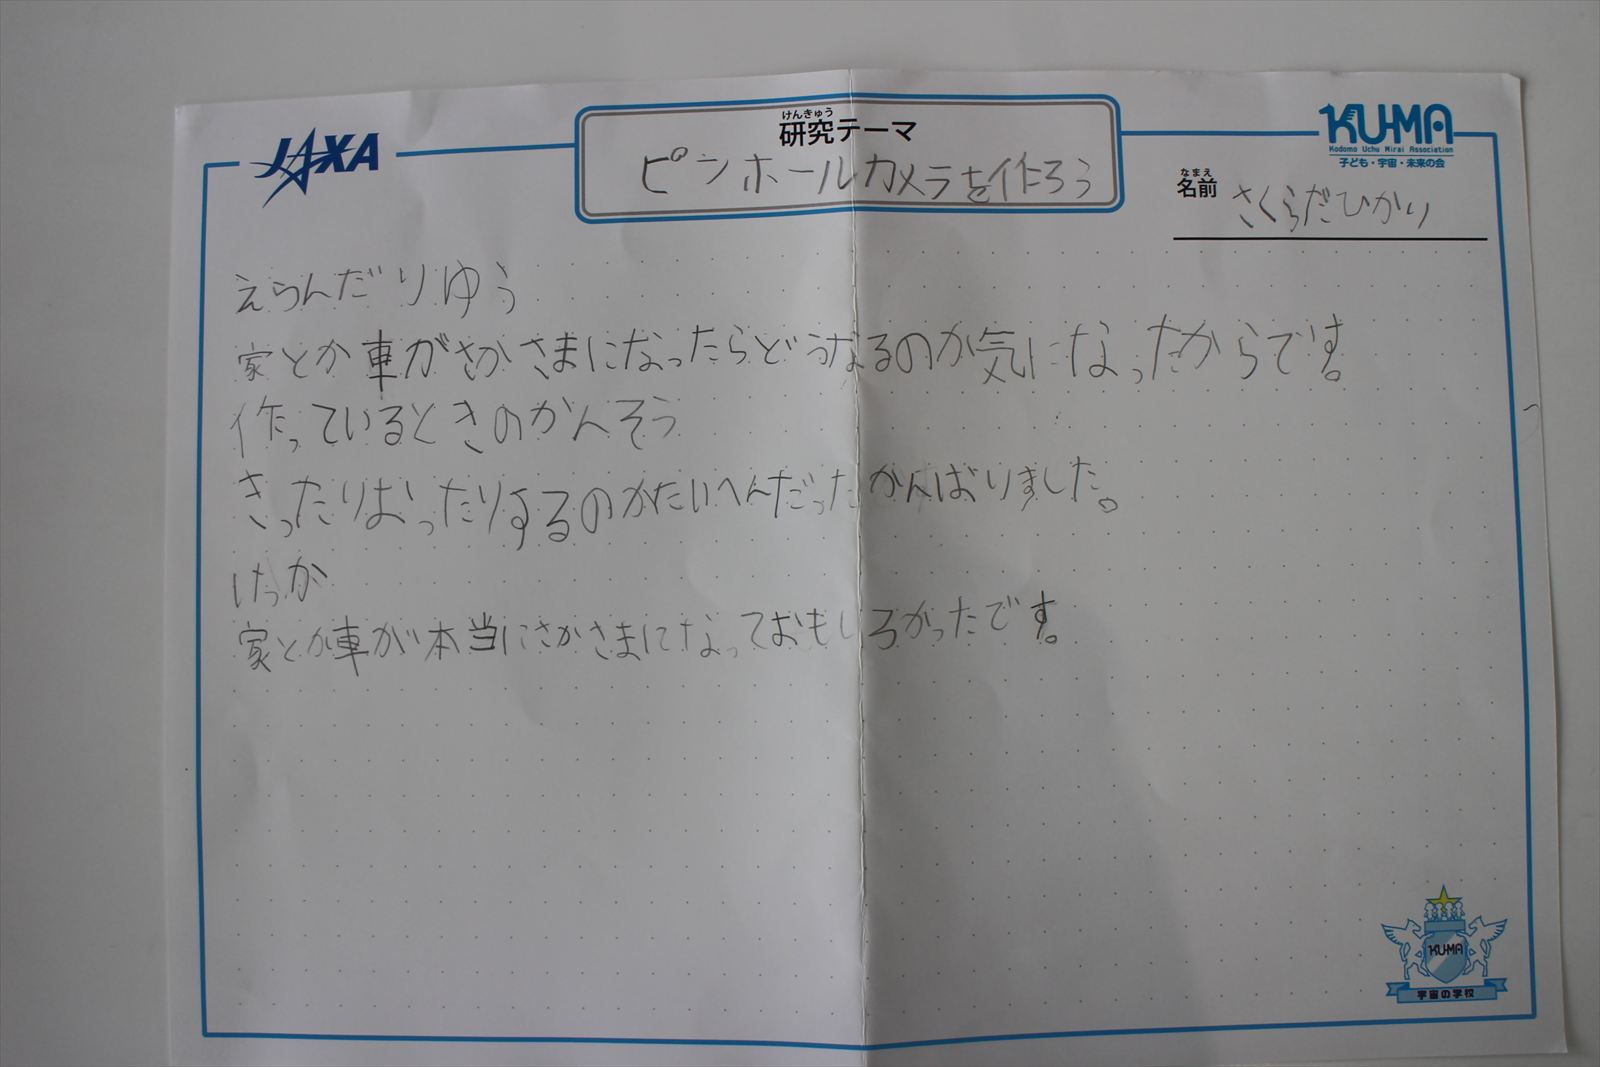 JAXA
けんきゅう
研究テーマ
ピンホールカメラを作ろう
KU-MA
Kodomo Uchu Mirai Association
子ども・宇宙・未来の会
なまえ
名前 さくらだひかり
えらんだりゆう
家とか車がさかさまになったらどうなるのか気になったからです。
作っているときのかんそう
きったりおったりするのがたいへんだったがんばりました。
けっか
家とか車が本当にさかさまになっておもしろかったです。
KU-MA
宇宙の学校